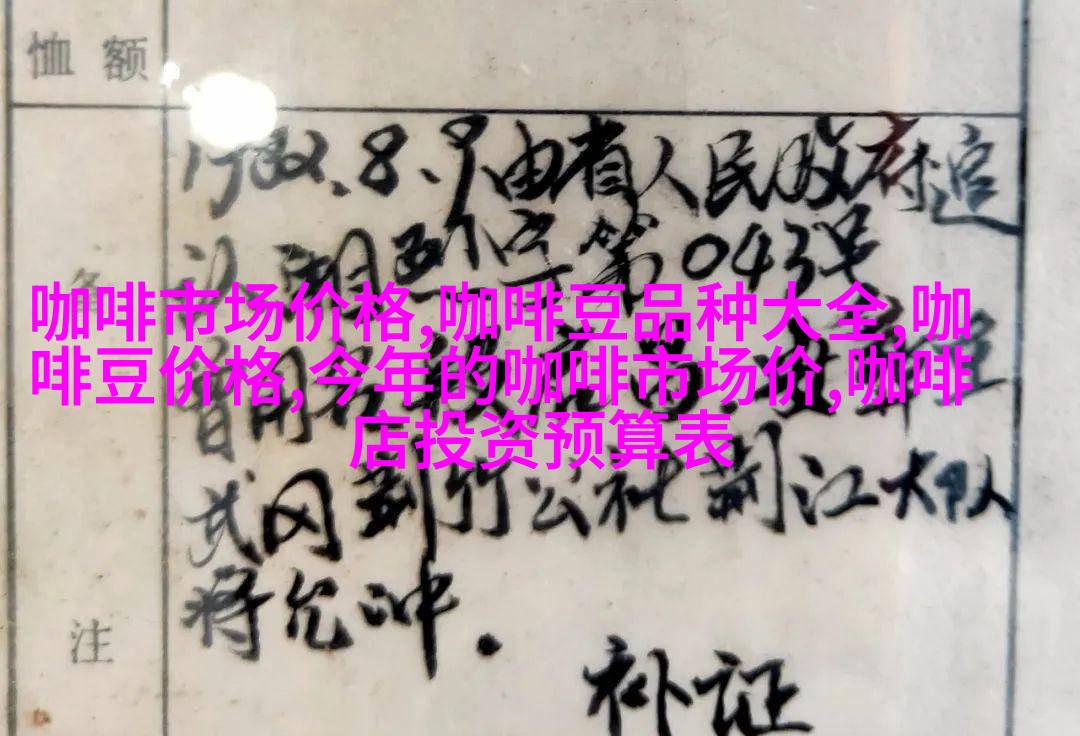 恤额
1982.8.9由省人民政府追
认,湘烈字第043号
咖啡市场价格,咖啡豆品种大全,咖
啡豆价格,今年的咖啡市场价,咖啡
店投资预算表
武冈荆竹公社荆江大队
蒋允冲.
备注
补证